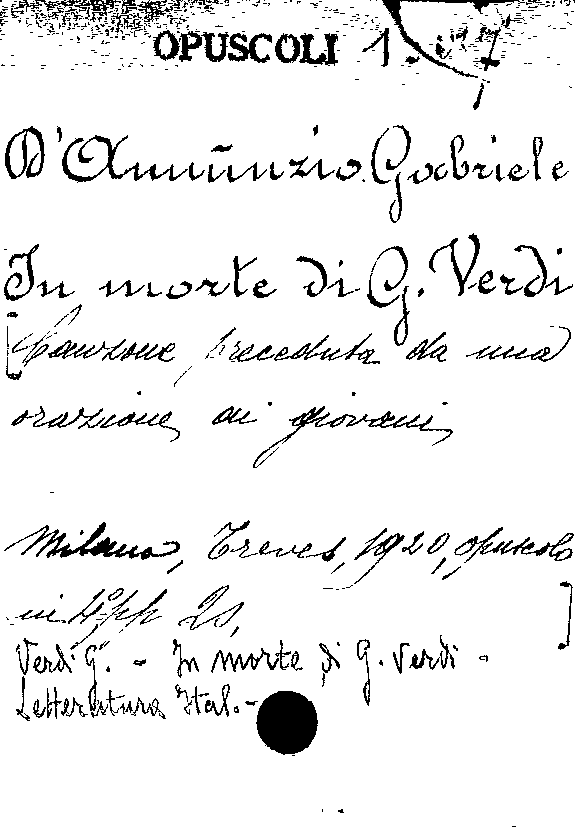 OPUSCOLI 1.
D'Annunzio Gabriele
In morte di G. Verdi
[Canzone preceduta da una
orazione ai giovani
Milano, Treves, 1920, opuscolo
in 4° pp 2s, ]
Verdi G. - In morte di G. Verdi -
Letteratura Ital. -